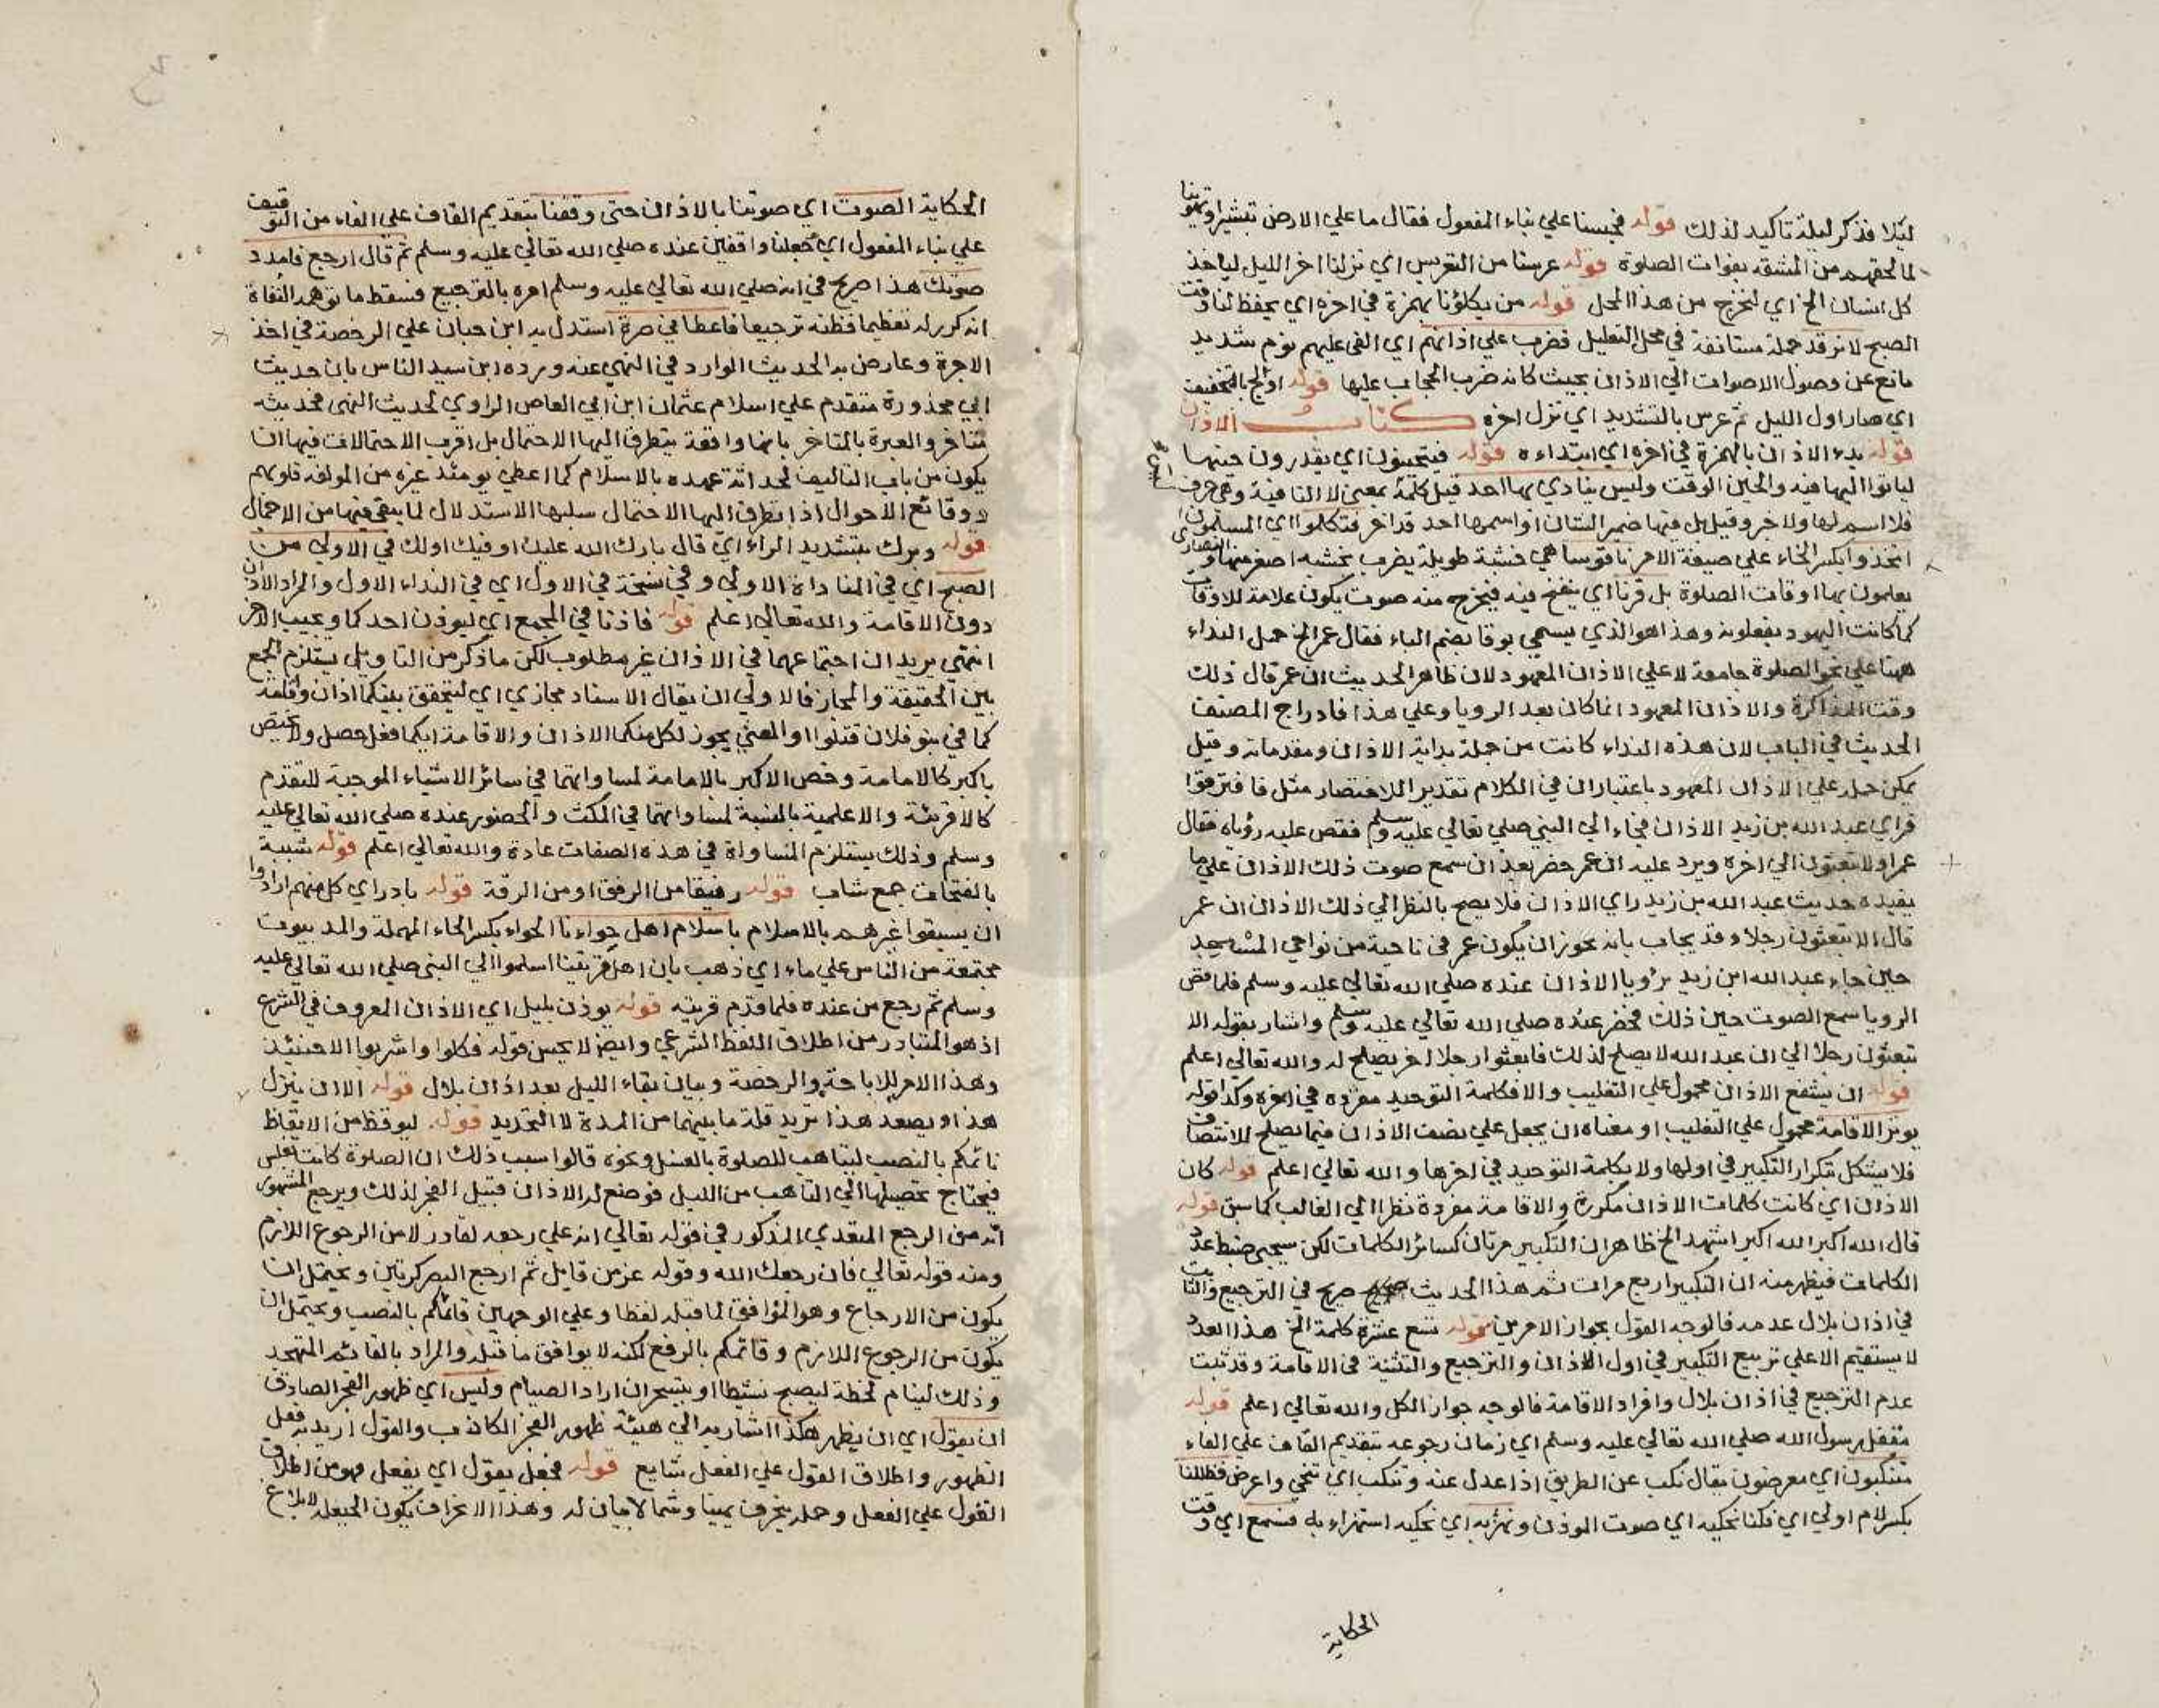 ليلا فذكر ليلة تاكيد لذلك قوله فحبسنا علي بناء المفعول فقال ما علي الارض تبشيرا وتهوينا
لما لحقهم من المشقة بفوات الصلوة قوله عرسنا من التعريس اي نزلنا اخر الليل لياخذ
كل انسان الخ اي لنخرج من هذا المحل قوله من يكلؤنا بهمزة في اخره اي يحفظ لنا وقت
الصبح لا نرقد جملة مستانفة في محل التعليل فضرب علي اذانهم اي القي عليهم نوم شديد
مانع عن وصول الاصوات الي الاذان بحيث كانه ضرب الحجاب عليها قوله ادلج بالتخفيف
اي صار اول الليل ثم عرس بالتشديد اي نزل اخره كتاب الاذان
قوله بدء الاذان بالهمزة في اخره اي ابتداءه قوله فيتحينون اي يقدرون حينها
لياتوا اليها فيه والحين الوقت وليس ينادي بها احد قيل كلمة ليس بمعني لا النافية وهي حرف
فلا اسم لها ولا خبر وقيل بل فيها ضمير الشان او اسمها احد قد اخر فتكلموا اي المسلمون
اتخذوا بكسر الخاء علي صيغة الامر ناقوسا هي خشبة طويلة يضرب بخشبة اصغر منها والنصاري
يعلمون بها اوقات الصلوة بل قرنا اي ينفخ فيه فيخرج منه صوت يكون علامة للاوقات
كما كانت اليهود يفعلونه وهذا هو الذي يسمي بوقا بضم الباء فقال عمر الخ حمل النداء
ههنا علي نحو الصلوة جامعة لا علي الاذان المعهود لان ظاهر الحديث ان عمر قال ذلك
وقت المذاكرة والاذان المعهود انما كان بعد الرويا وعلي هذا فادراج المصنف
الحديث في الباب لان هذه النداء كانت من جملة بداية الاذان ومقدماته وقيل
يمكن حمله علي الاذان المعهود باعتبار ان في الكلام تقديرا للاختصار مثل فافترقوا
فراي عبد الله بن زيد الاذان فجاء الي النبي صلي تعالي عليه وسلم فقص عليه رؤياه فقال
عمر اولا تبعثون الي اخره ويرد عليه ان عمر حضر بعد ان سمع صوت ذلك الاذان علي ما
يفيده حديث عبد الله بن زيد راي الاذان فلا يصح بالنظر الي ذلك الاذان ان عمر
قال الا تبعثون رجلا وقد يجاب بانه يجوز ان يكون عمر في ناحية من نواحي المسجد
حين جاء عبد الله ابن زيد برؤيا الاذان عنده صلي الله تعالي عليه وسلم فلما قص
الرويا سمع الصوت حين ذلك فحضر عنده صلي الله تعالي عليه وسلم واشار بقوله الا
تبعثون رجلا الي ان عبد الله لا يصلح لذلك فابعثوا رجلا اخر يصلح له والله تعالي اعلم
قوله ان يشفع الاذان محمول علي التغليب والا فكلمة التوحيد مفرده في اخره وكذا قوله
يوتر الاقامة محمول علي التغليب او معناه ان يجعل علي نصف الاذان فيما يصلح للانتصاف
فلا يشكل بتكرار التكبير في اولها ولا بكلمة التوحيد في اخرها والله تعالي اعلم قوله كان
الاذان اي كانت كلمات الاذان مكررة والاقامة مفردة نظرا الي الغالب كما سبق قوله
قال الله اكبر الله اكبر اشهد الخ ظاهر ان التكبير مرتان كسائر الكلمات لكن سيجيئ ضبط عدد
الكلمات فيظهر منه ان التكبير اربع مرات ثم هذا الحديث صريح في الترجيع والثابت
في اذان بلال عدمه فالوجه القول بجواز الامرين قوله تسع عشرة كلمة الخ هذا العدد
لا يستقيم الا علي تربيع التكبير في اول الاذان والترجيع والتثنية في الاقامة وقد ثبت
عدم الترجيع في اذان بلال وافراد الاقامة فالوجه جواز الكل والله تعالي اعلم قوله
مقفل رسول الله صلي الله تعالي عليه وسلم اي زمان رجوعه بتقديم القاف علي الفاء
متنكبون اي معرضون يقال نكب عن الطريق اذا عدل عنه وتنكب اي تنحي واعرض فظللنا
بكسر لام اولي اي فكنا نحكيه اي صوت الموذن ونهزء به اي نحكيه استهزاء به فسمع اي وقت
الحكاية
الحكاية الصوت اي صوتنا بالاذان حتي وقفنا بتقديم القاف علي الفاء من التوقيف
علي بناء المفعول اي جعلنا واقفين عنده صلي الله تعالي عليه وسلم ثم قال ارجع فامدد
صوتك هذا صريح في انه صلي الله تعالي عليه وسلم امره بالترجيع فسقط ما توهمه النفاة
انه كرر له تعظيما فظنه ترجيعا فاعطاني صرة استدل به ابن حبان علي الرخصة في اخذ
الاجرة وعارض به الحديث الوارد في النهي عنه ورده ابن سيد الناس بان حديث
ابي محذورة متقدم علي اسلام عثمان ابن ابي العاص الراوي لحديث النهي فحديثه
متاخر والعبرة بالمتاخر بانها واقعة يتطرق اليها الاحتمال بل اقرب الاحتمالات فيها ان
يكون من باب التاليف لحداثة عهده بالاسلام كما اعطي يومئذ غيره من المولفة قلوبهم
ووقائع الاحوال اذا تطرق اليها الاحتمال سلبها الاستدلال لما يبقي فيها من الاجمال
قوله وبرك بتشديد الراء اي قال بارك الله عليك او فيك اولك في الاولي من
الصبح اي في المناداة الاولي وفي نسخة في الاول اي في النداء الاول والمراد الاذان
دون الاقامة والله تعالي اعلم قوله فاذنا في المجمع اي ليوذن احدكما ويجيب الاخر
انتهي يريد ان اجتماعهما في الاذان غير مطلوب لكن ما ذكر من التاويل يستلزم الجمع
بين الحقيقة والمجاز فالاولي ان يقال الاسناد مجازي اي ليتحقق بينكما اذان واقامة
كما في بنو فلان قتلوا والمعني يجوز لكل منكما الاذان والاقامة ايكما فعل حصل ولا يختص
باكبر كالامامة وخص الاكبر بالامامة لمساواتهما في سائر الاشياء الموجبة للتقدم
كالاقرئة والاعلمية بالسنة لمساواتهما في المكث والحضور عنده صلي الله تعالي عليه
وسلم وذلك يستلزم المساواة في هذه الصفات عادة والله تعالي اعلم قوله شببة
بالفتحات جمع شاب قوله رفيقا من الرفق او من الرقة قوله بادر اي كل منهم ارادوا
ان يسبقوا غيرهم بالاسلام باسلام اهل حواءنا الحواء بكسر الحاء المهملة والمد بيوت
مجتمعة من الناس علي ماء اي ذهب بان اهل قريتنا اسلموا الي النبي صلي الله تعالي عليه
وسلم ثم رجع من عنده فلما قدم قريته قوله يوذن بليل اي الاذان المعروف في الشرع
اذ هو المتبادر من اطلاق اللفظ الشرعي وايضا لا يحسن قوله فكلوا واشربوا الا حينئذ
وهذا الامر للاباحة والرخصة وبيان بقاء الليل بعد اذان بلال قوله الا ان ينزل
هذا ويصعد هذا تريد قلة ما بينهما من المدة لا التحديد قوله ليوقظ من الايقاظ
نائمكم بالنصب ليتاهب للصلوة بالغسل ونحوه قالوا سبب ذلك ان الصلوة كانت بغلس
فيحتاج تحصيلها الي التاهب من الليل فوضع له الاذان قبيل الفجر لذلك ويرجع المشهور
انه من الرجع المتعدي المذكور في قوله تعالي انه علي رجعه لقادر لا من الرجوع اللازم
ومنه قوله تعالي فان رجعك الله وقوله عز من قايل ثم ارجع البصر كرتين ويحتمل ان
يكون من الارجاع وهو الموافق لما قبله لفظا وعلي الوجهين قائمكم بالنصب ويحتمل ان
يكون من الرجوع اللازم وقائمكم بالرفع لكنه لا يوافق ما قبله والمراد بالقائم المتهجد
وذلك لينام لحظة ليصبح نشيطا او يتسحر ان اراد الصيام وليس اي ظهور الفجر الصادق
ان يقول اي ان يظهر هكذا اشار به الي هيئة ظهور الفجر الكاذب والقول اريد به فعل
الظهور واطلاق القول علي الفعل شايع قوله فجعل يقول اي يفعل فهو من اطلاق
القول علي الفعل وجملة ينحرف يمينا وشمالا بيان له وهذا الانحراف يكون الحيعلة لابلاغ